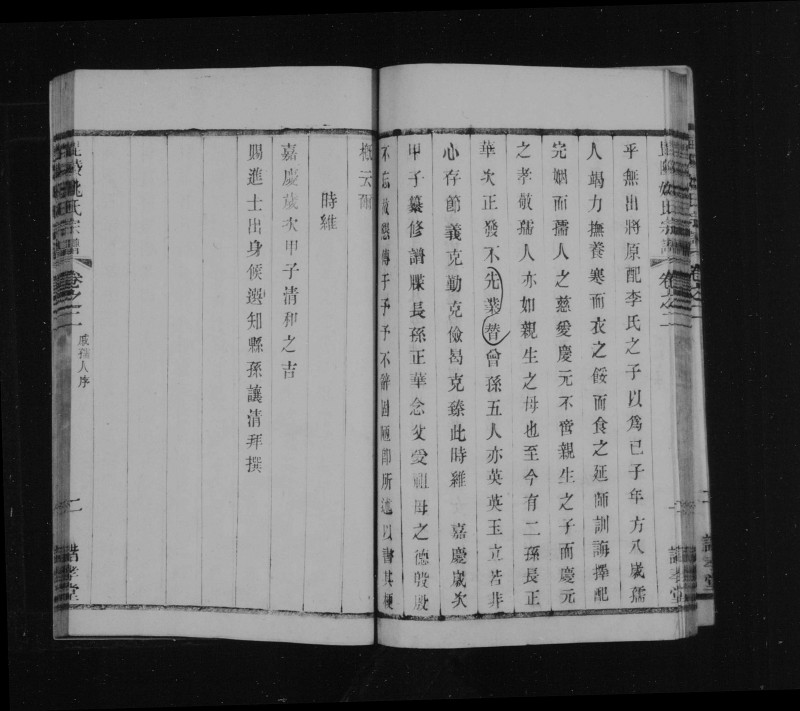 平無出將原配李氏之子以為已子年方八歲孺
人竭力撫養寒而衣之餒而食之延師訓誨擇配
完姻而孺人之慈愛慶元不啻親生之子而慶元
之孝敬孺人亦如親生之母也至今有二孫長正
華次正發不先業替曾孫五人亦英英玉立若非
心存節義克勤克儉曷克臻此時維 嘉慶歲次
甲子纂修譜牒長孫正華念父愛祖母之德殷殷
不忘故懇傳于予予不辭固陋即所述以書其梗
概云爾
時維
嘉慶歲次甲子清和之吉
賜進士出身候選知縣孫讓清拜撰
姚氏宗譜 卷之二 戚孺人序 二 譜孝堂